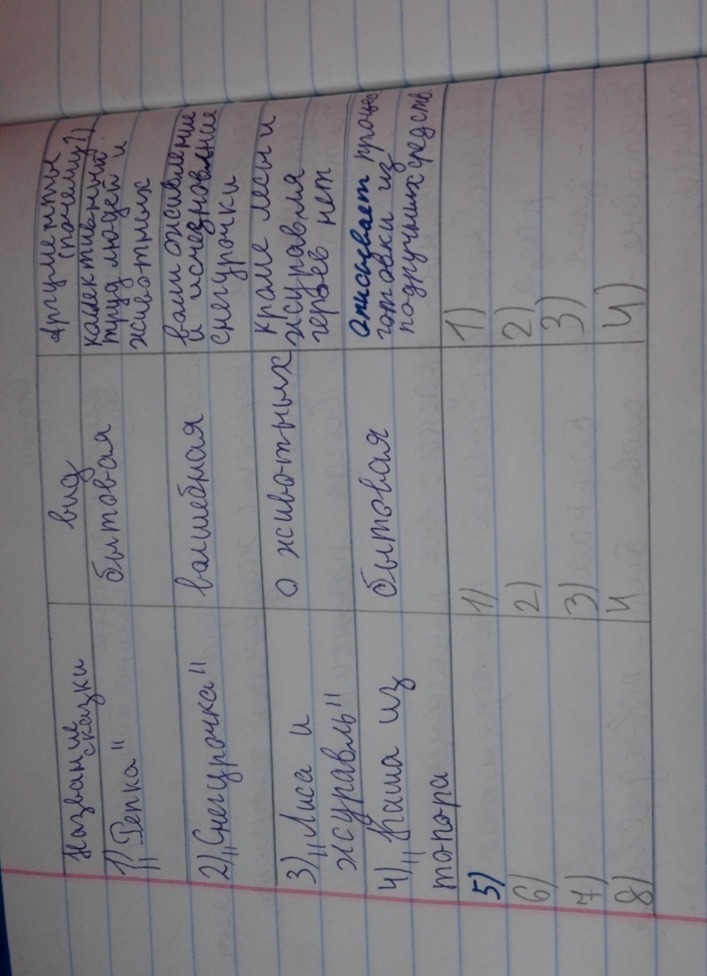 Название
сказки
вид
Аргументы
(почему?)
1) „Репка"
бытовая
калективный
труд людей и
животных
2) „Снегурочка"
валшебная
валш оживление
и исчезновление
снегурочки
3) „Лиса и
журавль"
о животных
краме лисы и
журавля
героев нет
4) „Каша из
топора
бытовая
описывает процес
готовки из
подручных средств.
5)
1)
1)
6)
2)
2)
7)
3)
3)
8)
4
4)